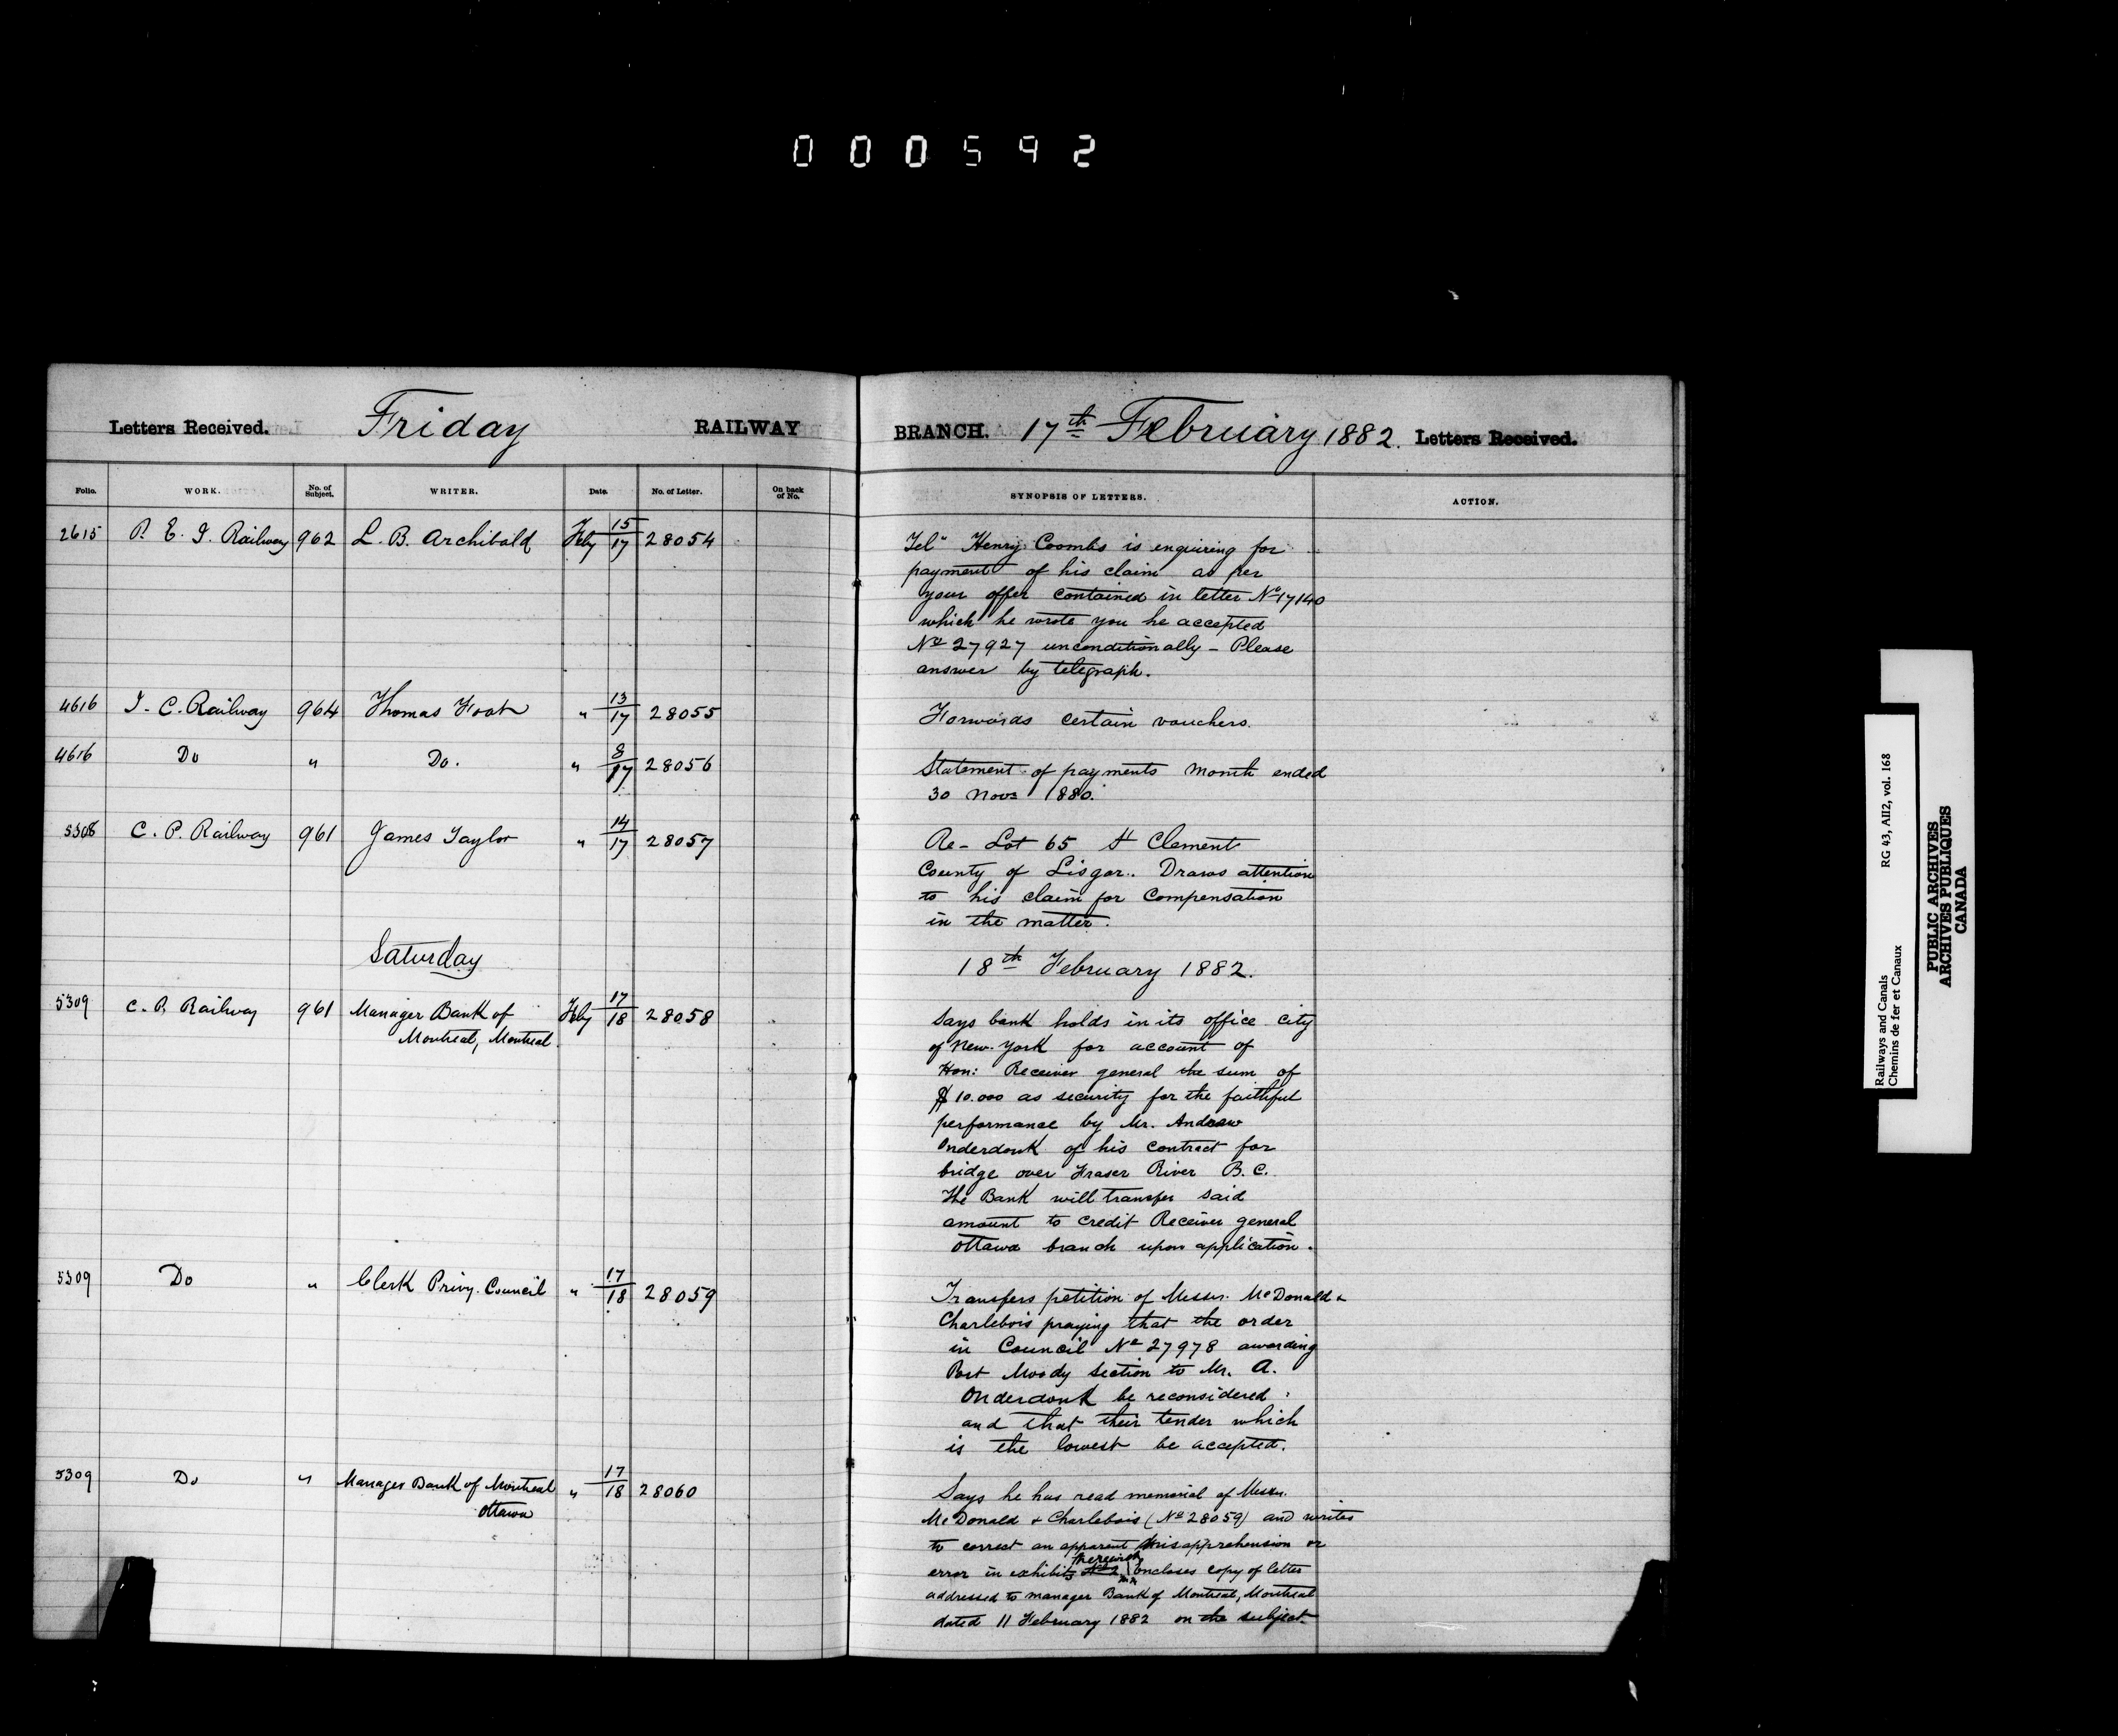 000592
Letters Received. Friday RAILWAY BRANCH. 17th February 1882. Letters Received.
Folio. WORK. No. of Subject. WRITER. Date. No. of Letter. On back of No. SYNOPSIS OF LETTERS. ACTION.
2615 P. E. I. Railway 962 L. B. Archibald Feby 15/17 28054
Tel" Henry Coombs is enquiring for
payment of his claim as per
your offer contained in letter No 17140
which he wrote you he accepted
No 27927 unconditionally - Please
answer by telegraph.
4616 I. C. Railway 964 Thomas Foot " 13/17 28055
Forwards certain vouchers.
4616 Do " Do. " 8/17 28056
Statement of payments month ended
30 Novr 1880.
5308 C. P. Railway 961 James Taylor " 14/17 28057
Re - Lot 65 St Clements
County of Lisgar. Draws attention
to his claim for Compensation
in the matter.
Saturday 18th February 1882.
5309 C. P. Railway 961 Manager Bank of
Montreal, Montreal Feby 17/18 28058
Says bank holds in its office city
of New-York for account of
Hon: Receiver general the sum of
$10.000 as security for the faithful
performance by Mr. Andrew
Onderdonk of his contract for
bridge over Fraser River B.C.
The Bank will transfer said
amount to credit Receiver general
Ottawa branch upon application.
5309 Do " Clerk Privy. Council " 17/18 28059
Transfers petition of Messrs. McDonald &
Charlebois praying that the order
in Council No 27978 awarding
Port Moody section to Mr. A.
Onderdonk be reconsidered
and that their tender which
is the lowest be accepted.
5309 Do " Manager Bank of Montreal
Ottawa " 17/18 28060
Says he has read memorial of Messrs.
McDonald & Charlebois (No 28059) and writes
to correct an apparent misapprehension or
therewith
error in exhibits encloses copy of letter
addressed to manager Bank of Montreal, Montreal
dated 11 February 1882 on the subject
Railways and Canals RG 43, AII2, vol. 168
Chemins de fer et Canaux
PUBLIC ARCHIVES
ARCHIVES PUBLIQUES
CANADA